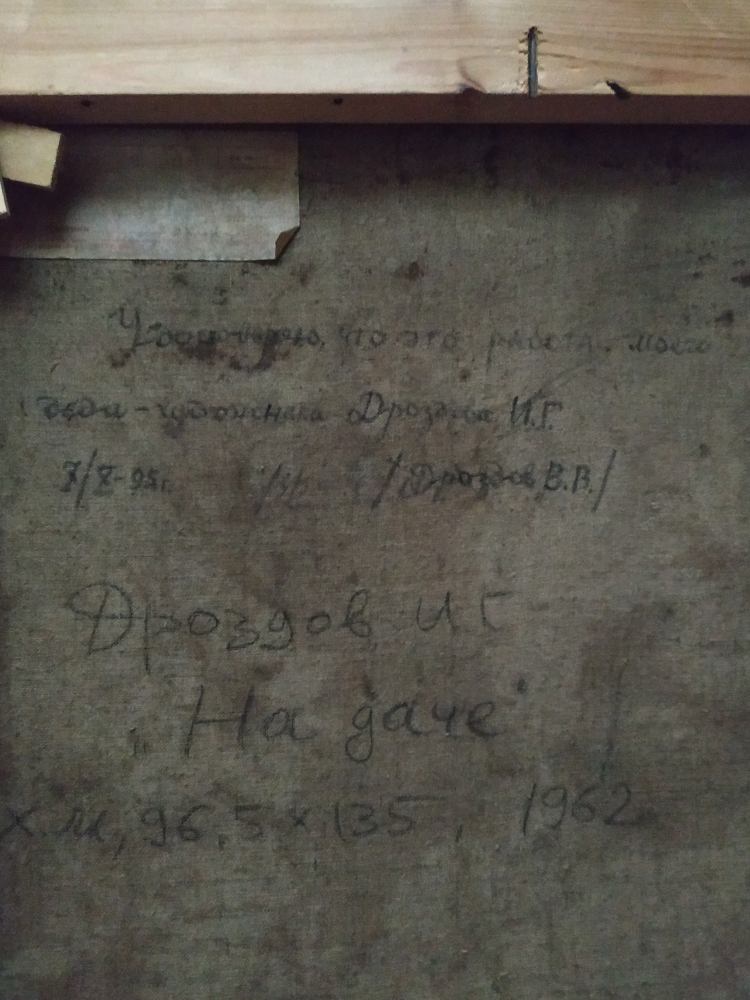 Удостоверяю, что это работа моего
деда - художника Дроздова И.Г.
/Дроздов В.В./
Дроздов И Г
"На даче"
х.м, 96,5 х 135, 1962